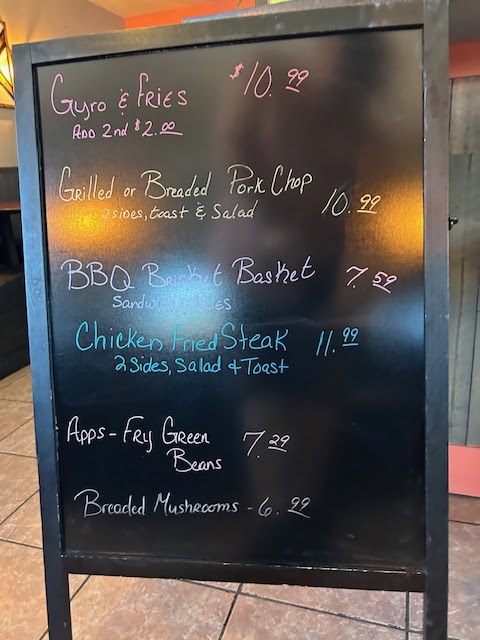 Gyro & Fries $10.99
ADD 2nd $2.00
Grilled or Breaded Pork Chop 10.99
2 sides, toast & Salad
BBQ Brisket Basket 7.59
Chicken Fried Steak 11.99
2 Sides, Salad & Toast
Apps - Fry Green 7.29
Beans
Breaded Mushrooms - 6.99